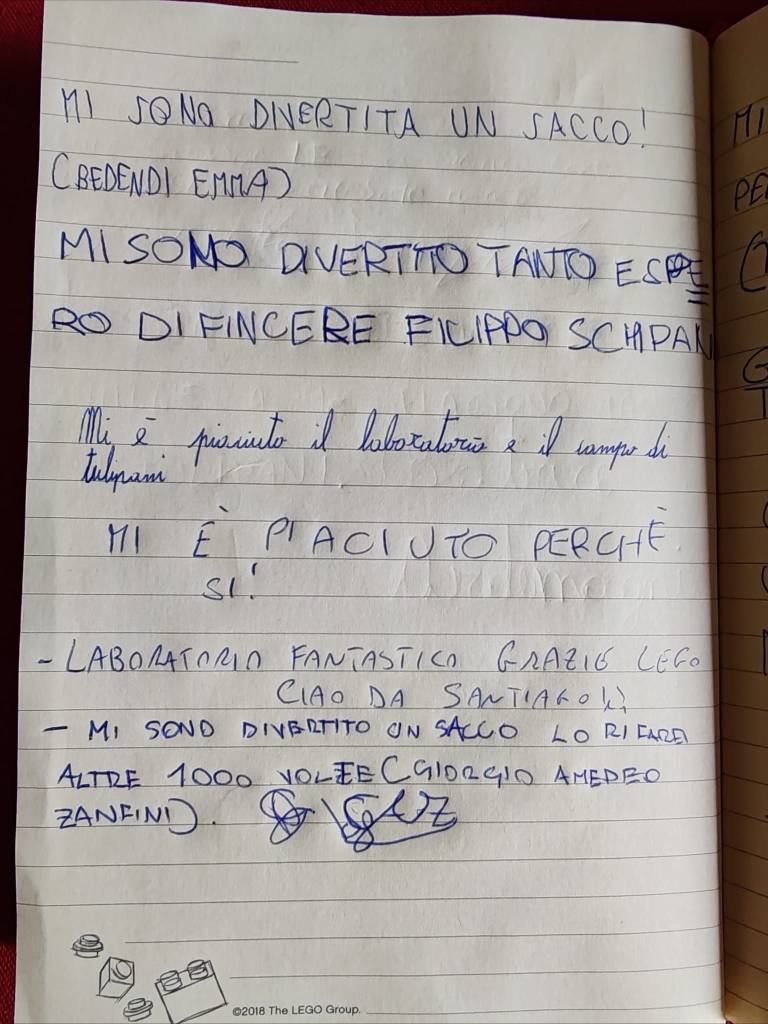 MI SONO DIVERTITA UN SACCO!
(BEDENDI EMMA)
MI SONO DIVERTITO TANTO E SPE
RO DI FINCERE FILIPPO SCHIPAN
Mi è piaciuto il laboratorio e il campo di
tulipani
MI È PIACIUTO PERCHÈ
SI!
- LABORATORIO FANTASTICO GRAZIE LEGO
CIAO DA SANTIAGO :)
- MI SONO DIVERTITO UN SACCO LO RIFAREI
ALTRE 1000 VOLTE (GIORGIO AMEDEO
ZANFINI).
©2018 The LEGO Group.
MI
PE